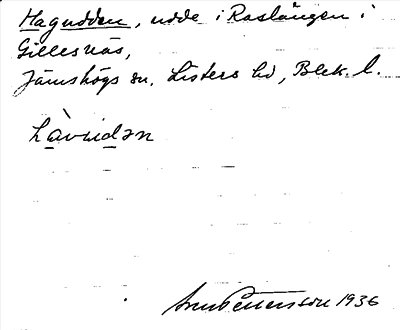 Hagudden, udde i Raslången i
Gillesnäs,
Jämshögs sn. Listers hd, Blek. l.
Pettersson 1936